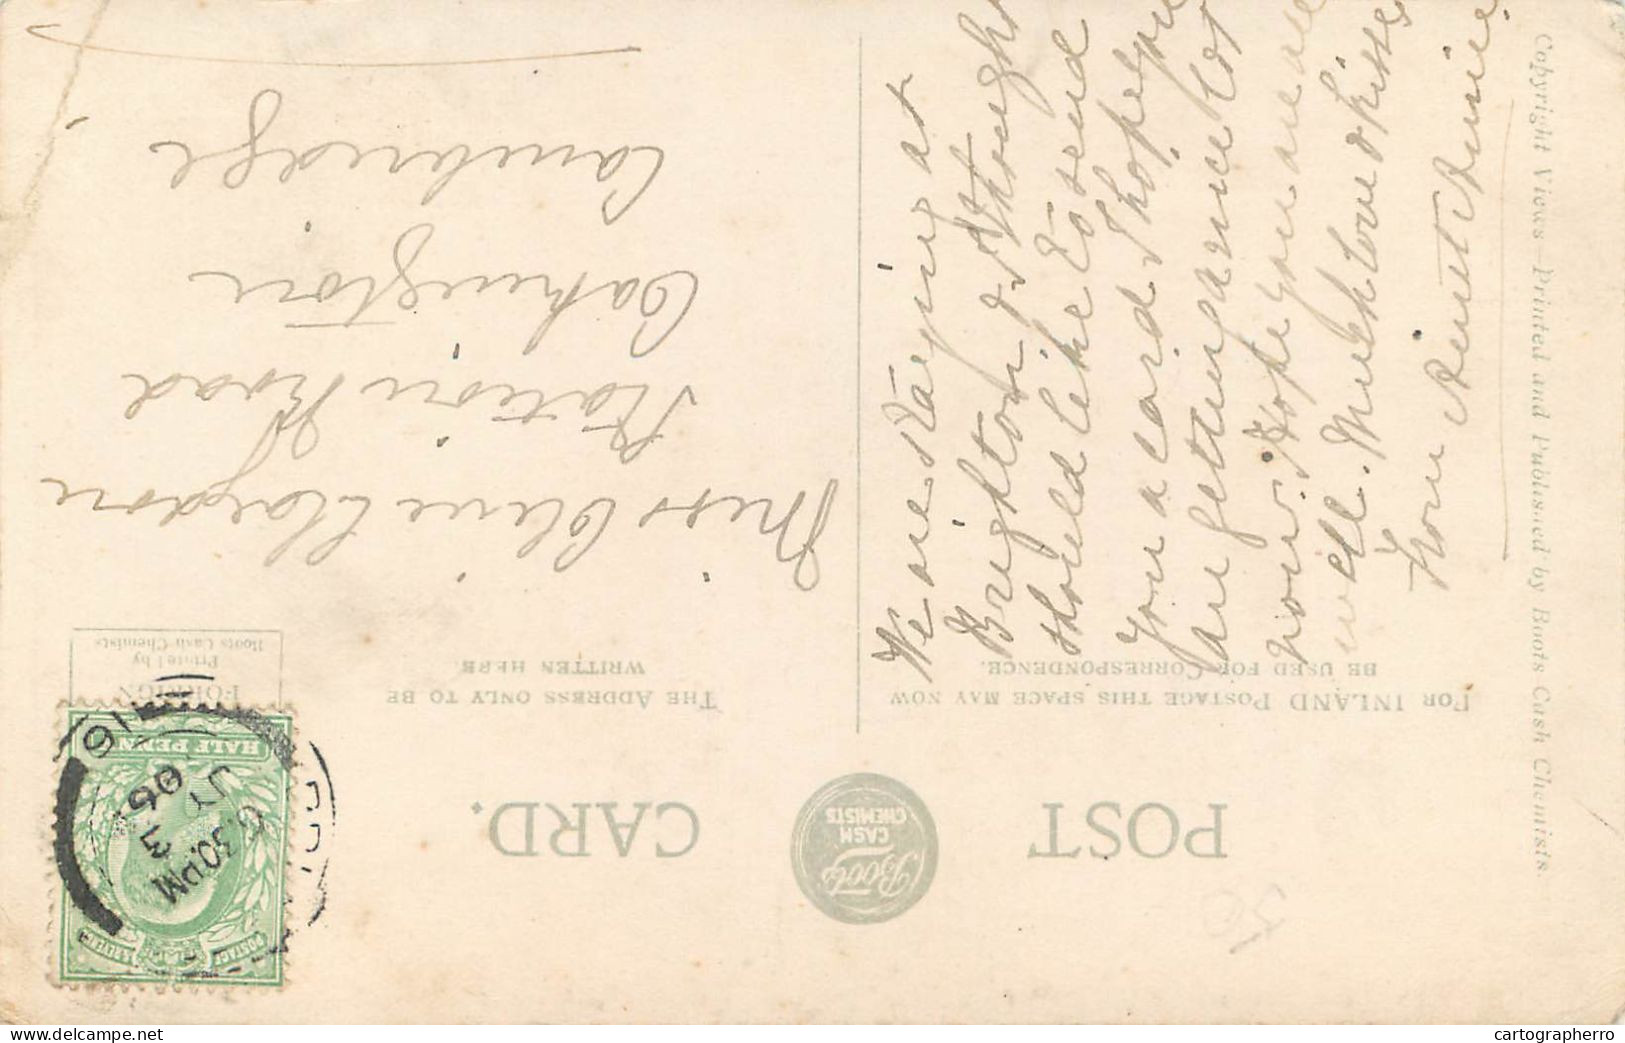 POST
CARD.
Boots
CASH
CHEMISTS
FOR INLAND POSTAGE THIS SPACE MAY NOW
BE USED FOR CORRESPONDENCE.
THE ADDRESS ONLY TO BE
WRITTEN HERE.
FOREIGN
Printed by
Boots Cash Chemists
POSTAGE
HALF PENNY
6.30 PM
JY 5
06
91
We are staying at
Brighton & I thought
should like to send
you a card I hope you
are getting a nice lot
now. Hope you are all
well. Much love & kisses
from Aunt Annie
Miss Olive
Station Road
Oakington
Cambridge
Copyright Views—Printed and Published by Boots Cash Chemists.
50
cartographerro